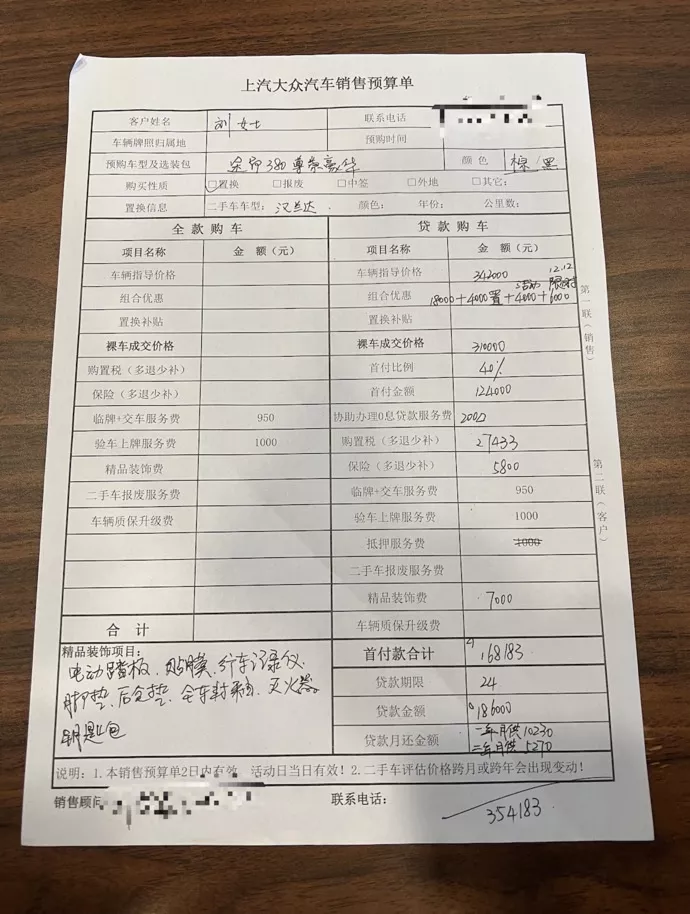 上汽大众汽车销售预算单
客户姓名 刘女士 联系电话
车辆牌照归属地 预购时间
预购车型及选装包 途昂380尊崇豪华 颜色 棕/黑
购买性质 □置换 □报废 □中签 □外地 □其它:
置换信息 二手车车型: 汉兰达 颜色: 年份: 公里数:
全款购车 贷款购车
项目名称 金 额(元) 项目名称 金 额(元)
车辆指导价格 车辆指导价格 342000
12.12
活动 限时
组合优惠 组合优惠 18000+4000置+4000+6000
置换补贴 置换补贴
裸车成交价格 裸车成交价格 310000
购置税(多退少补) 首付比例 40%
保险(多退少补) 首付金额 124000
临牌+交车服务费 950 协助办理0息贷款服务费 2000
验车上牌服务费 1000 购置税(多退少补) 27433
精品装饰费 保险(多退少补) 5800
二手车报废服务费 临牌+交车服务费 950
车辆质保升级费 验车上牌服务费 1000
抵押服务费 1000
二手车报废服务费
精品装饰费 7000
合 计 车辆质保升级费
精品装饰项目: 首付款合计 168183
电动踏板、贴膜、行车记录仪 贷款期限 24
脚垫、后仓垫、全车封釉、灭火器 贷款金额 186000
钥匙包 贷款月还金额 一年月供10230
二年月供 5270
说明:1.本销售预算单2日内有效,活动日当日有效!2.二手车评估价格跨月或跨年会出现变动!
销售顾问 联系电话:
354183
第一联(销售)
第二联(客户)